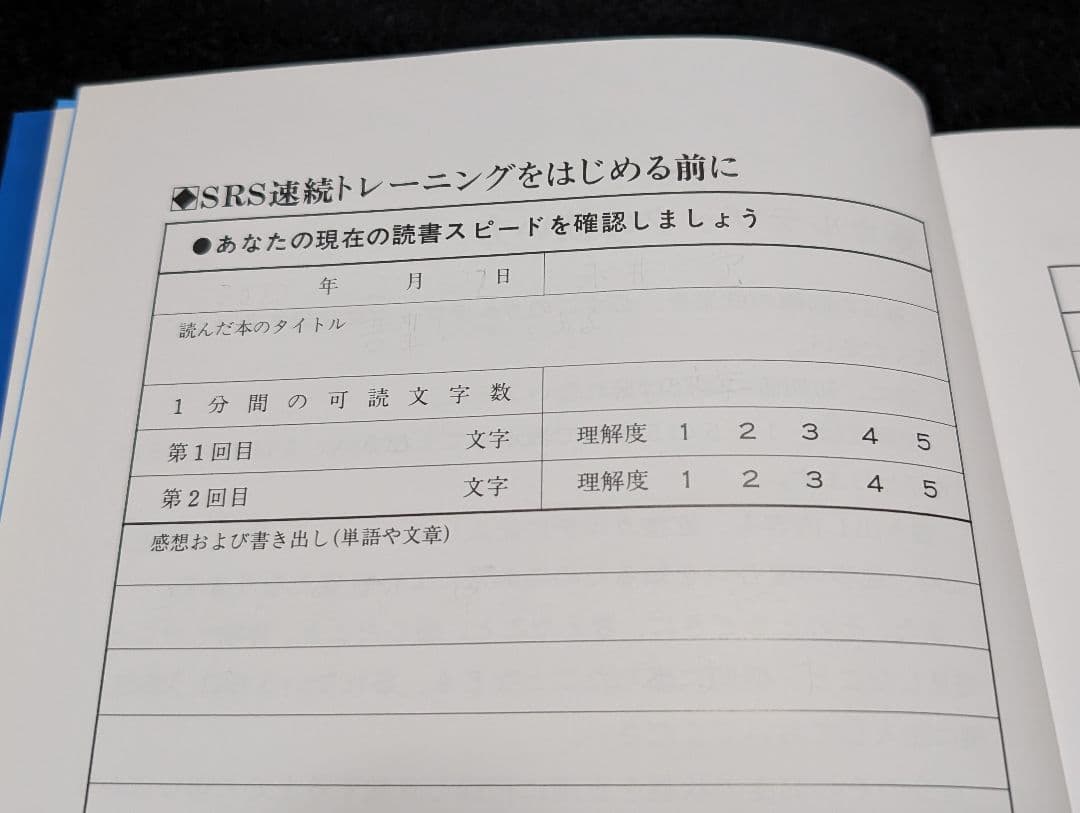 ◆SRS速続トレーニングをはじめる前に
●あなたの現在の読書スピードを確認しましょう
年 月 日
読んだ本のタイトル
1分間の可読文字数
第1回目 文字 理解度 1 2 3 4 5
第2回目 文字 理解度 1 2 3 4 5
感想および書き出し(単語や文章)